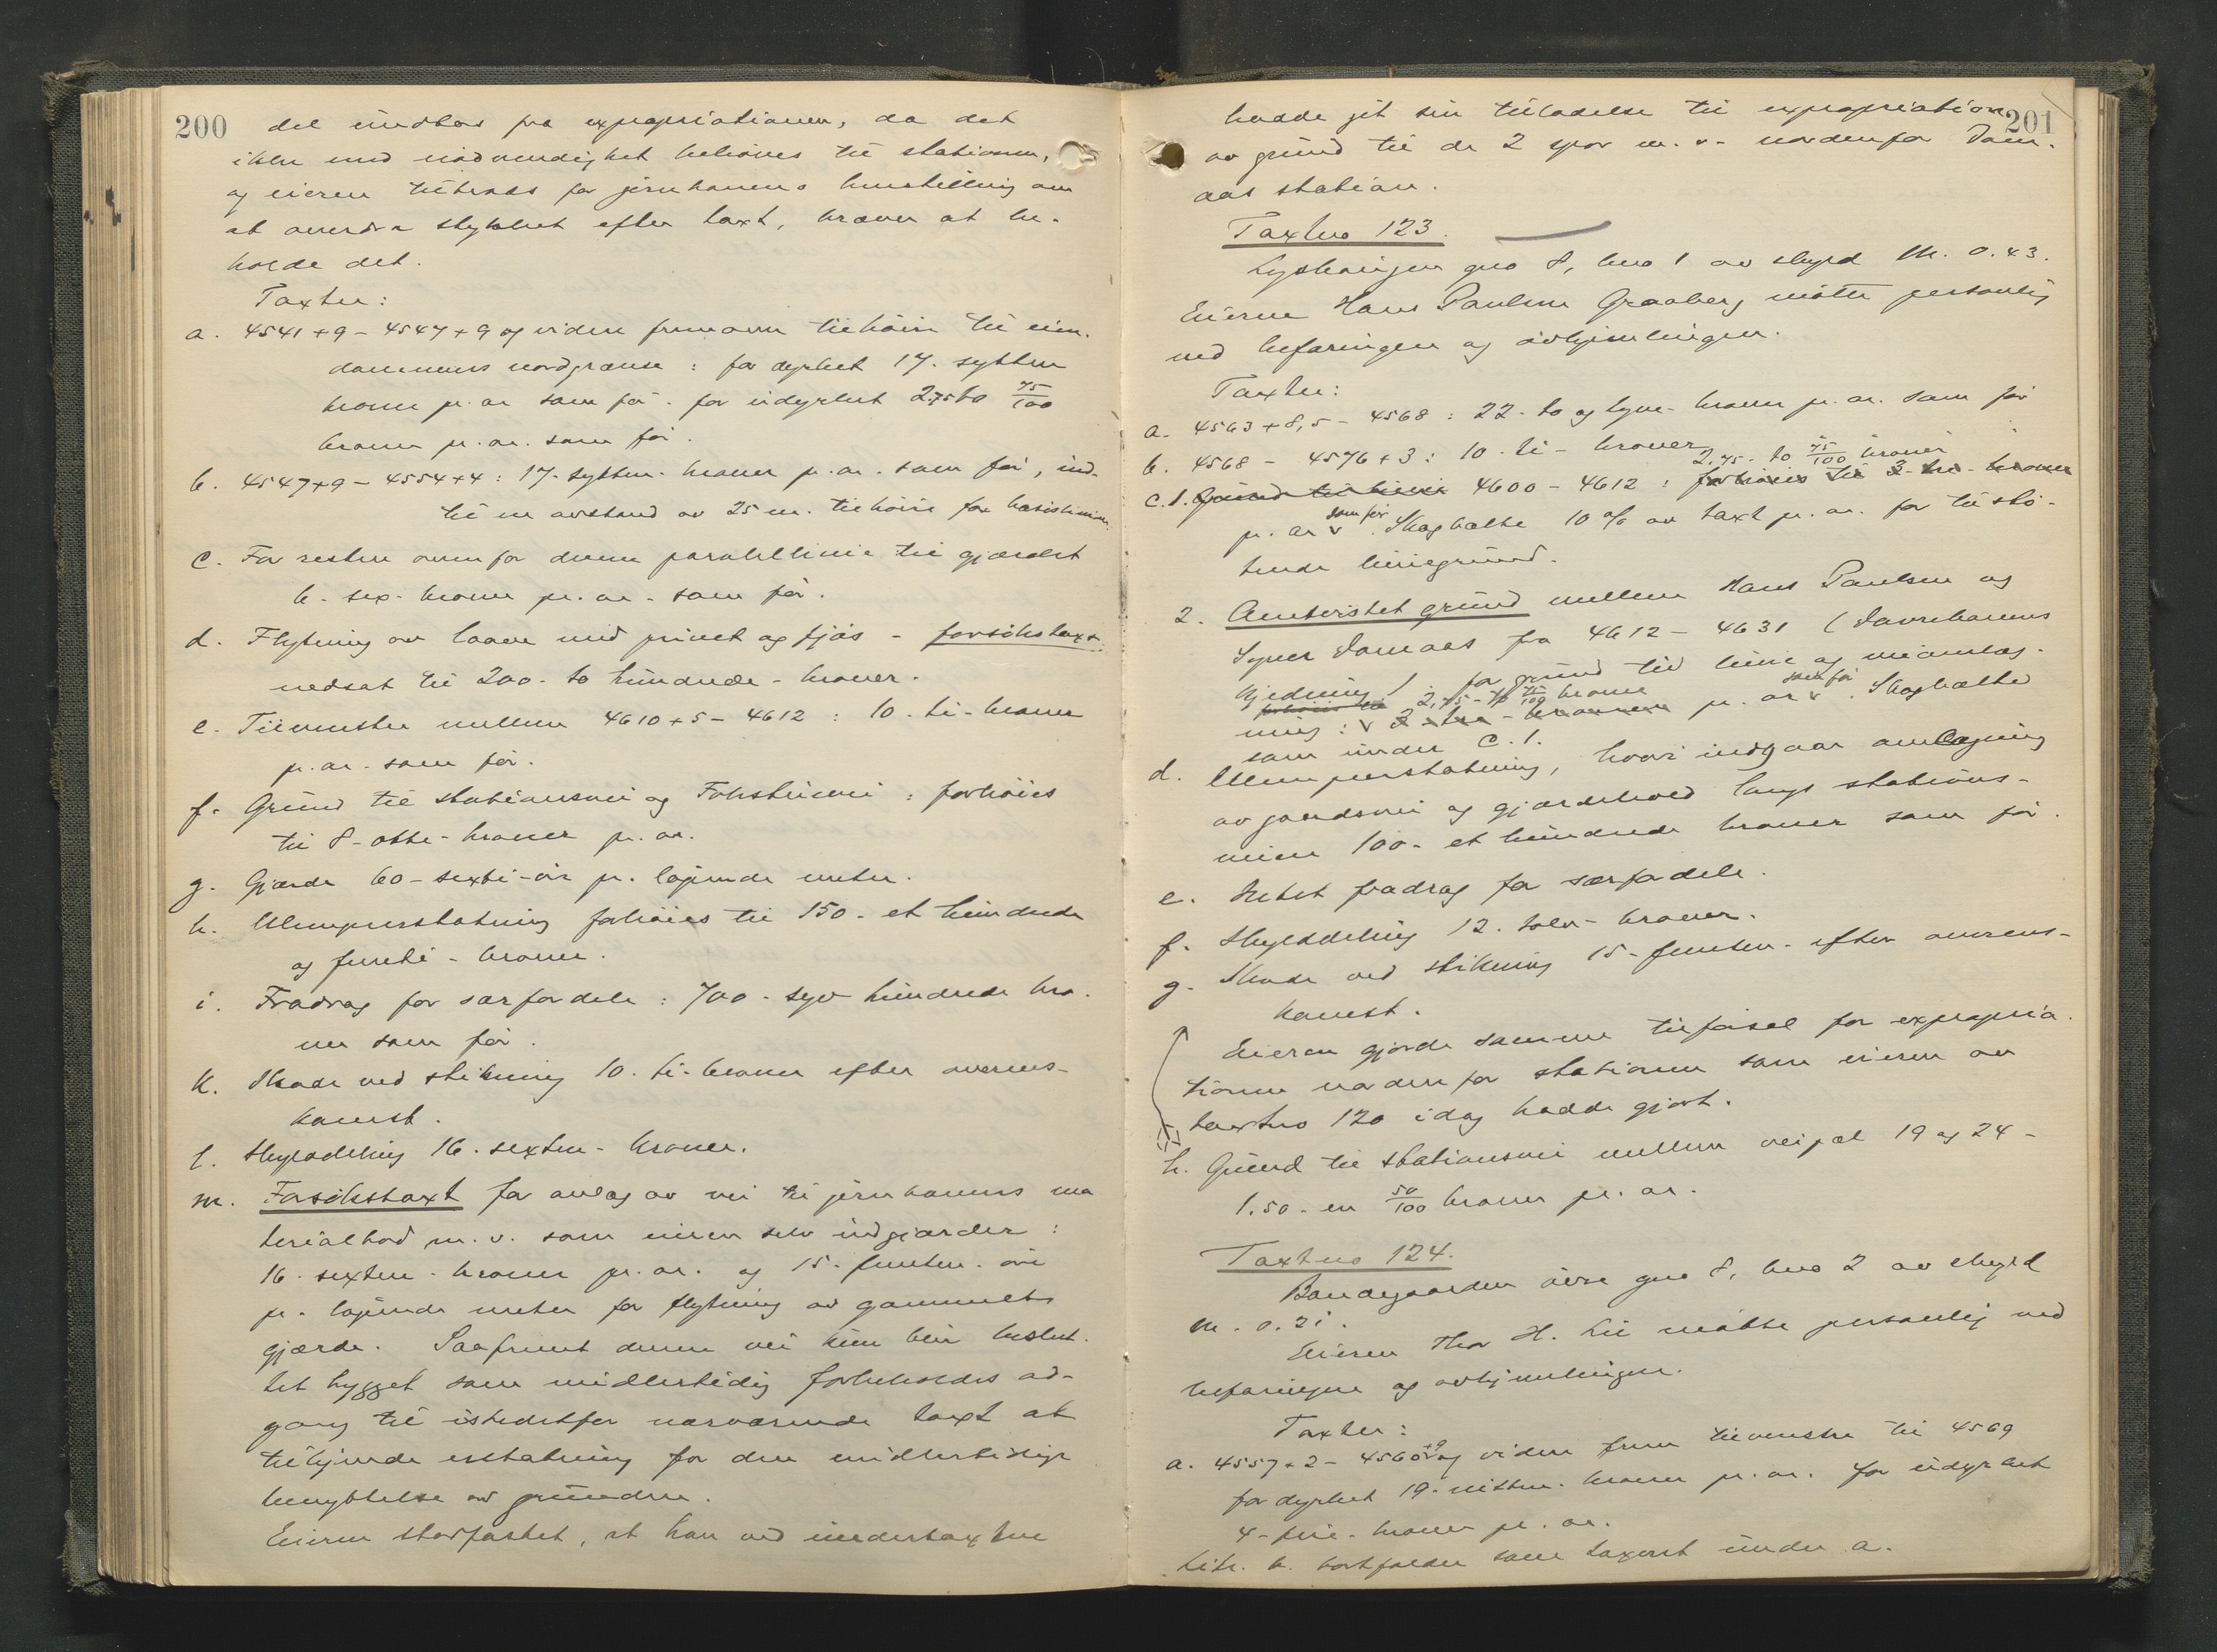 200
del undtas fra expropriationen, da det
ikke med nødvendighet behøves til stationen,
og eieren tiltrods for jernbanens henstilling om
at overdra stykket efter taxt, kræver at be-
holde det.
Taxter:
a. 4541+9 - 4547+9 og videre fremover tilhøire til eien-
dommens nordgrænse: for dyrket 17- sytten
kroner pr. ar som før. for udyrket 2.75 to 75/100
kroner pr. ar. som før.
b. 4547+9 - 4554+4: 17- sytten- kroner pr. ar. som før, ind-
til en avstand av 25 m. tilhøire for basislinien.
c. For resten ovenfor denne parallellinie til gjærdet
6- sex- kroner pr. ar- som før.
d. Flytning av laave med privet og fjøs - forsøkstaxt
nedsat til 200- to hundrede- kroner.
e. Tilvenstre mellem 4610+5 - 4612: 10- ti- kroner
pr. ar- som før.
f. Grund til stationsvei og : forhøies
til 8- otte- kroner pr. ar.
g. Gjærde 60- sexti- øre pr. løpende meter.
h. Ulempeerstatning forhøies til 150- et hundrede
og femti- kroner.
i. Fradrag for særfordele: 700- syv hundrede kro-
ner som før.
k. Skade ved stikning 10- ti- kroner efter overens-
komst.
l. Skylddeling 16- sexten- kroner.
m. Forsøkstaxt for anlæg av vei til jernbanens ma
terialbod m. v. som eieren selv indgjærder:
16- sexten- kroner pr. ar. og 15- femten- øre
pr. løpende meter for flytning av gammelt
gjærde. Saafremt denne vei kun blir beslut-
tet bygget som midlertidig forbeholdes ad-
gang til istedetfor nærværende taxt at
tilkjende erstatning for den midlertidige
benyttelse av grunden.
Eieren stadfæstet, at han ved undertaxten
201
hadde git sin tilladelse til expropriation
av grund til de 2 spor m. v. nordenfor Dom-
aas station.
Taxtno 123.
gno 8, bno 1 av skyld M. 0.43.
Eieren Hans Paulsen Graaberg møtte personlig
ved befaringen og avhjemlingen.
Taxter:
a. 4563+8,5 - 4568: 22- to og tyve- kroner pr. ar. som før
b. 4568 - 4576+3: 10- ti- kroner "
2,75- to 75/100 kroner
c. 1. Grund til linie 4600 - 4612: forhøies til 3- tre- kroner
pr. ar som før. Skogbælte 10 % av taxt pr. ar. for tilstø-
tende liniegrund.
2. Omtvistet grund mellem Hans Paulsen og
Syver Domaas fra 4612 - 4631 (Dovrebanens
kjedning) for grund til linie og veiomlæg-
forhøies til 2,75- to 75/100 kroner som før
ning: 3- tre- kroner pr. ar. Skogbælte
som under c. 1.
d. Ulempeerstatning, hvori indgaar omlægning
av gaardsvei og gjærdehold langs stations-
veien 100- et hundrede kroner som før.
e. Intet fradrag for særfordele.
f. Skylddeling 12- tolv- kroner.
g. Skade ved stikning 15- femten- efter overens-
komst.
Eieren gjorde samme tilføisel for expropria-
tionen nordenfor stationen som eieren av
taxtno 120 idag hadde gjort.
h. Grund til stationsvei mellem veipæl 19 og 24 -
1.50- en 50/100 kroner pr. ar.
Taxtno 124.
øvre gno 8, bno 2 av skyld
M. 0.21.
Eieren Thor H. Lie møtte personlig ved
befaringen og avhjemlingen.
Taxter:
a. 4557+2 - 4560+9 og videre frem tilvenstre til 4569
for dyrket 19- nitten- kroner pr. ar. for udyrket
4- fire- kroner pr. ar.
Litr. b. bortfalder som taxeret under a.